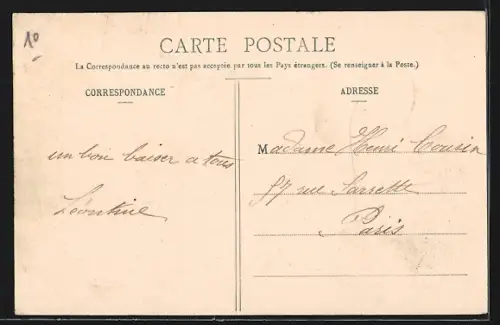 10
CARTE POSTALE
La Correspondance au recto n'est pas acceptée par tous les Pays étrangers. (Se renseigner à la Poste.)
CORRESPONDANCE
un bon baiser a tous
Léontine
ADRESSE
Madame Henri Cousin
57 rue Sarrette
Paris